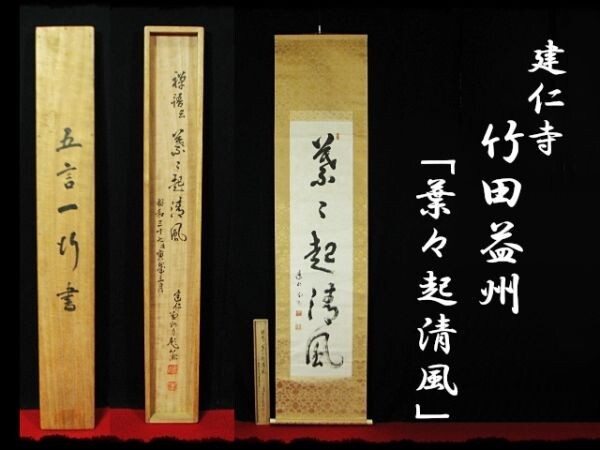 建仁寺
竹田益州
「葉々起清風」
葉々起清風
建仁
禅語云 葉々起清風
昭和三十七壬寅年三月
建仁
五言一行書